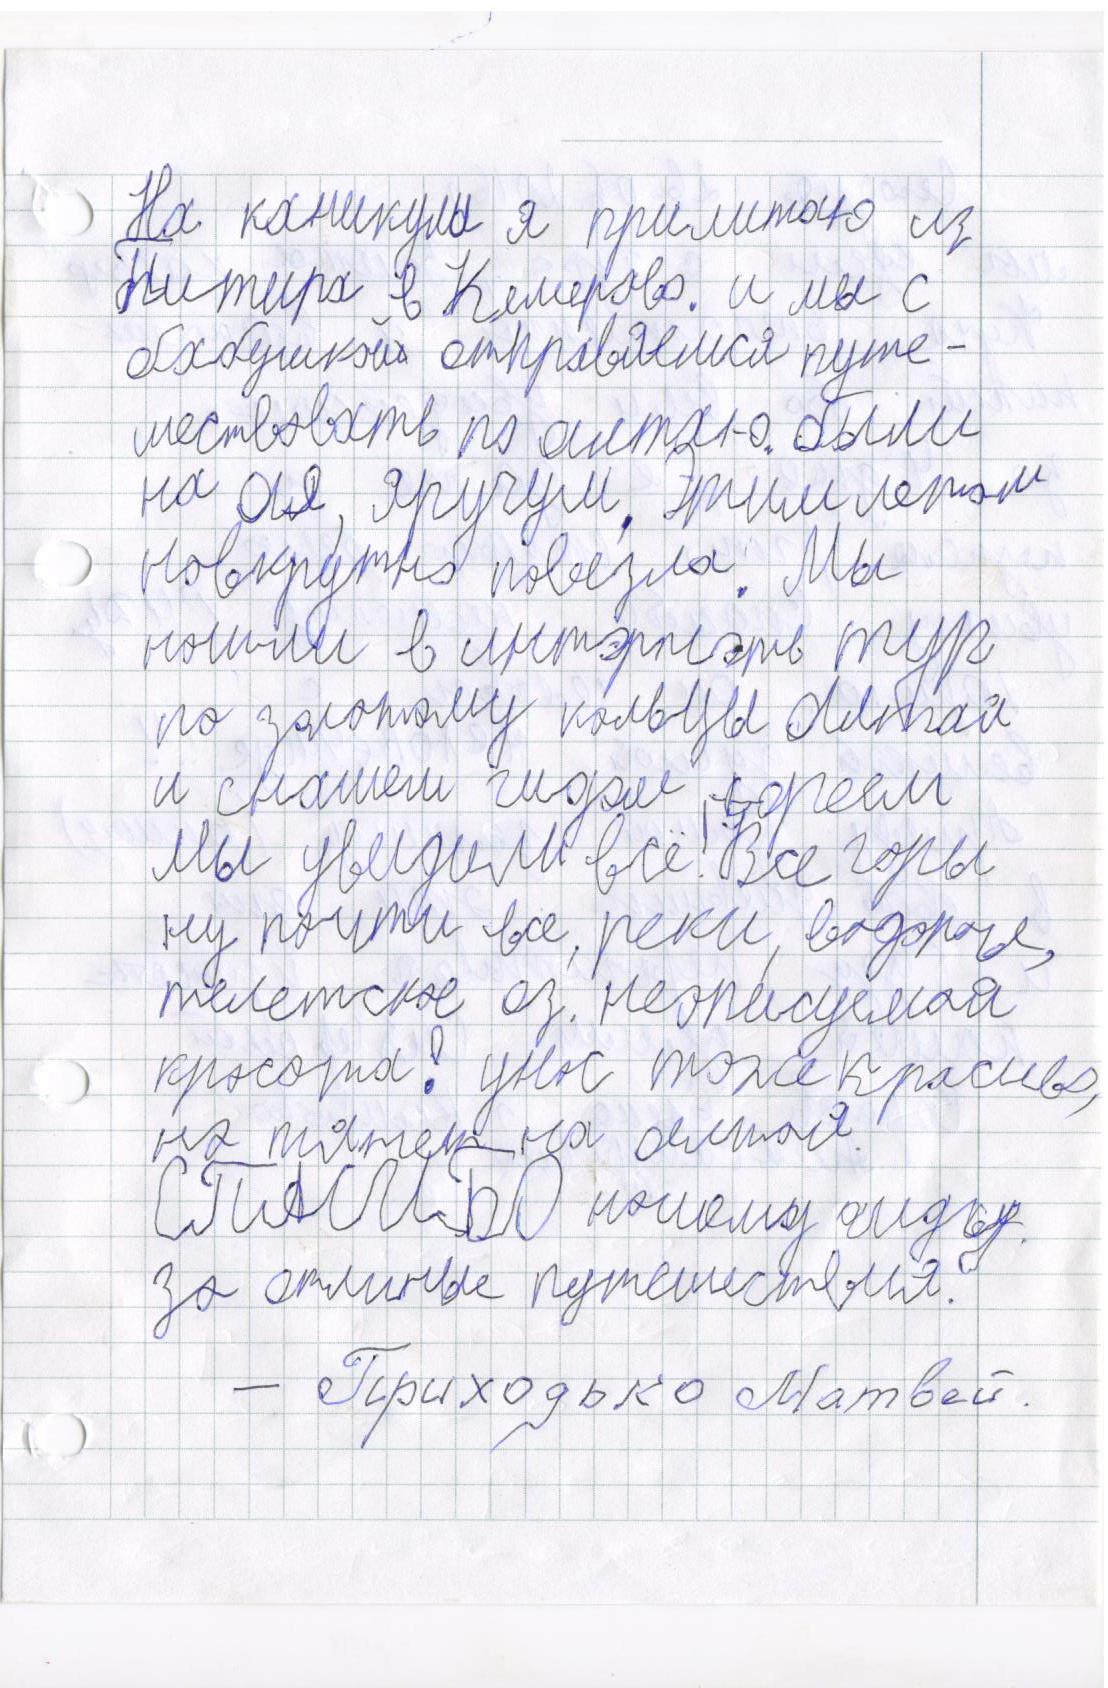 На каникулы я прилитаю из
Питира в Кемерово. и мы с
бабушкой отправяемся путе-
шествовать по алтаю. были
на Ая, Яручум. Этим летом
новкрутно повезла. Мы
ношли в интэрнэть тур
по золотому кольцы Алтая
и снашем гидом
мы увидили всё! Все горы
ну почти все, реки, водопоы,
телетское оз. неописуемая
красота! унас тоже красиво,
но тянет на алтай.
СПАСИБО ношому гиду
за отлиные путешествия!
— Приходько Матвей.